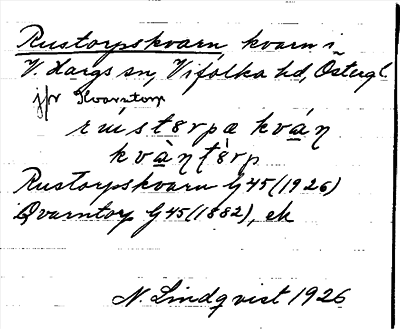 Rustorpskvarn, kvarn i
V. Hargs sn, Vifolka hd, Östergl.
jfr Kvarntorp
rústɵrpa kváɳ
kvàɳtɵ̀rp
Rustorpskvarn G 45 (1926)
Qvarntorp G 45 (1882), ek
N. Lindqvist 1926